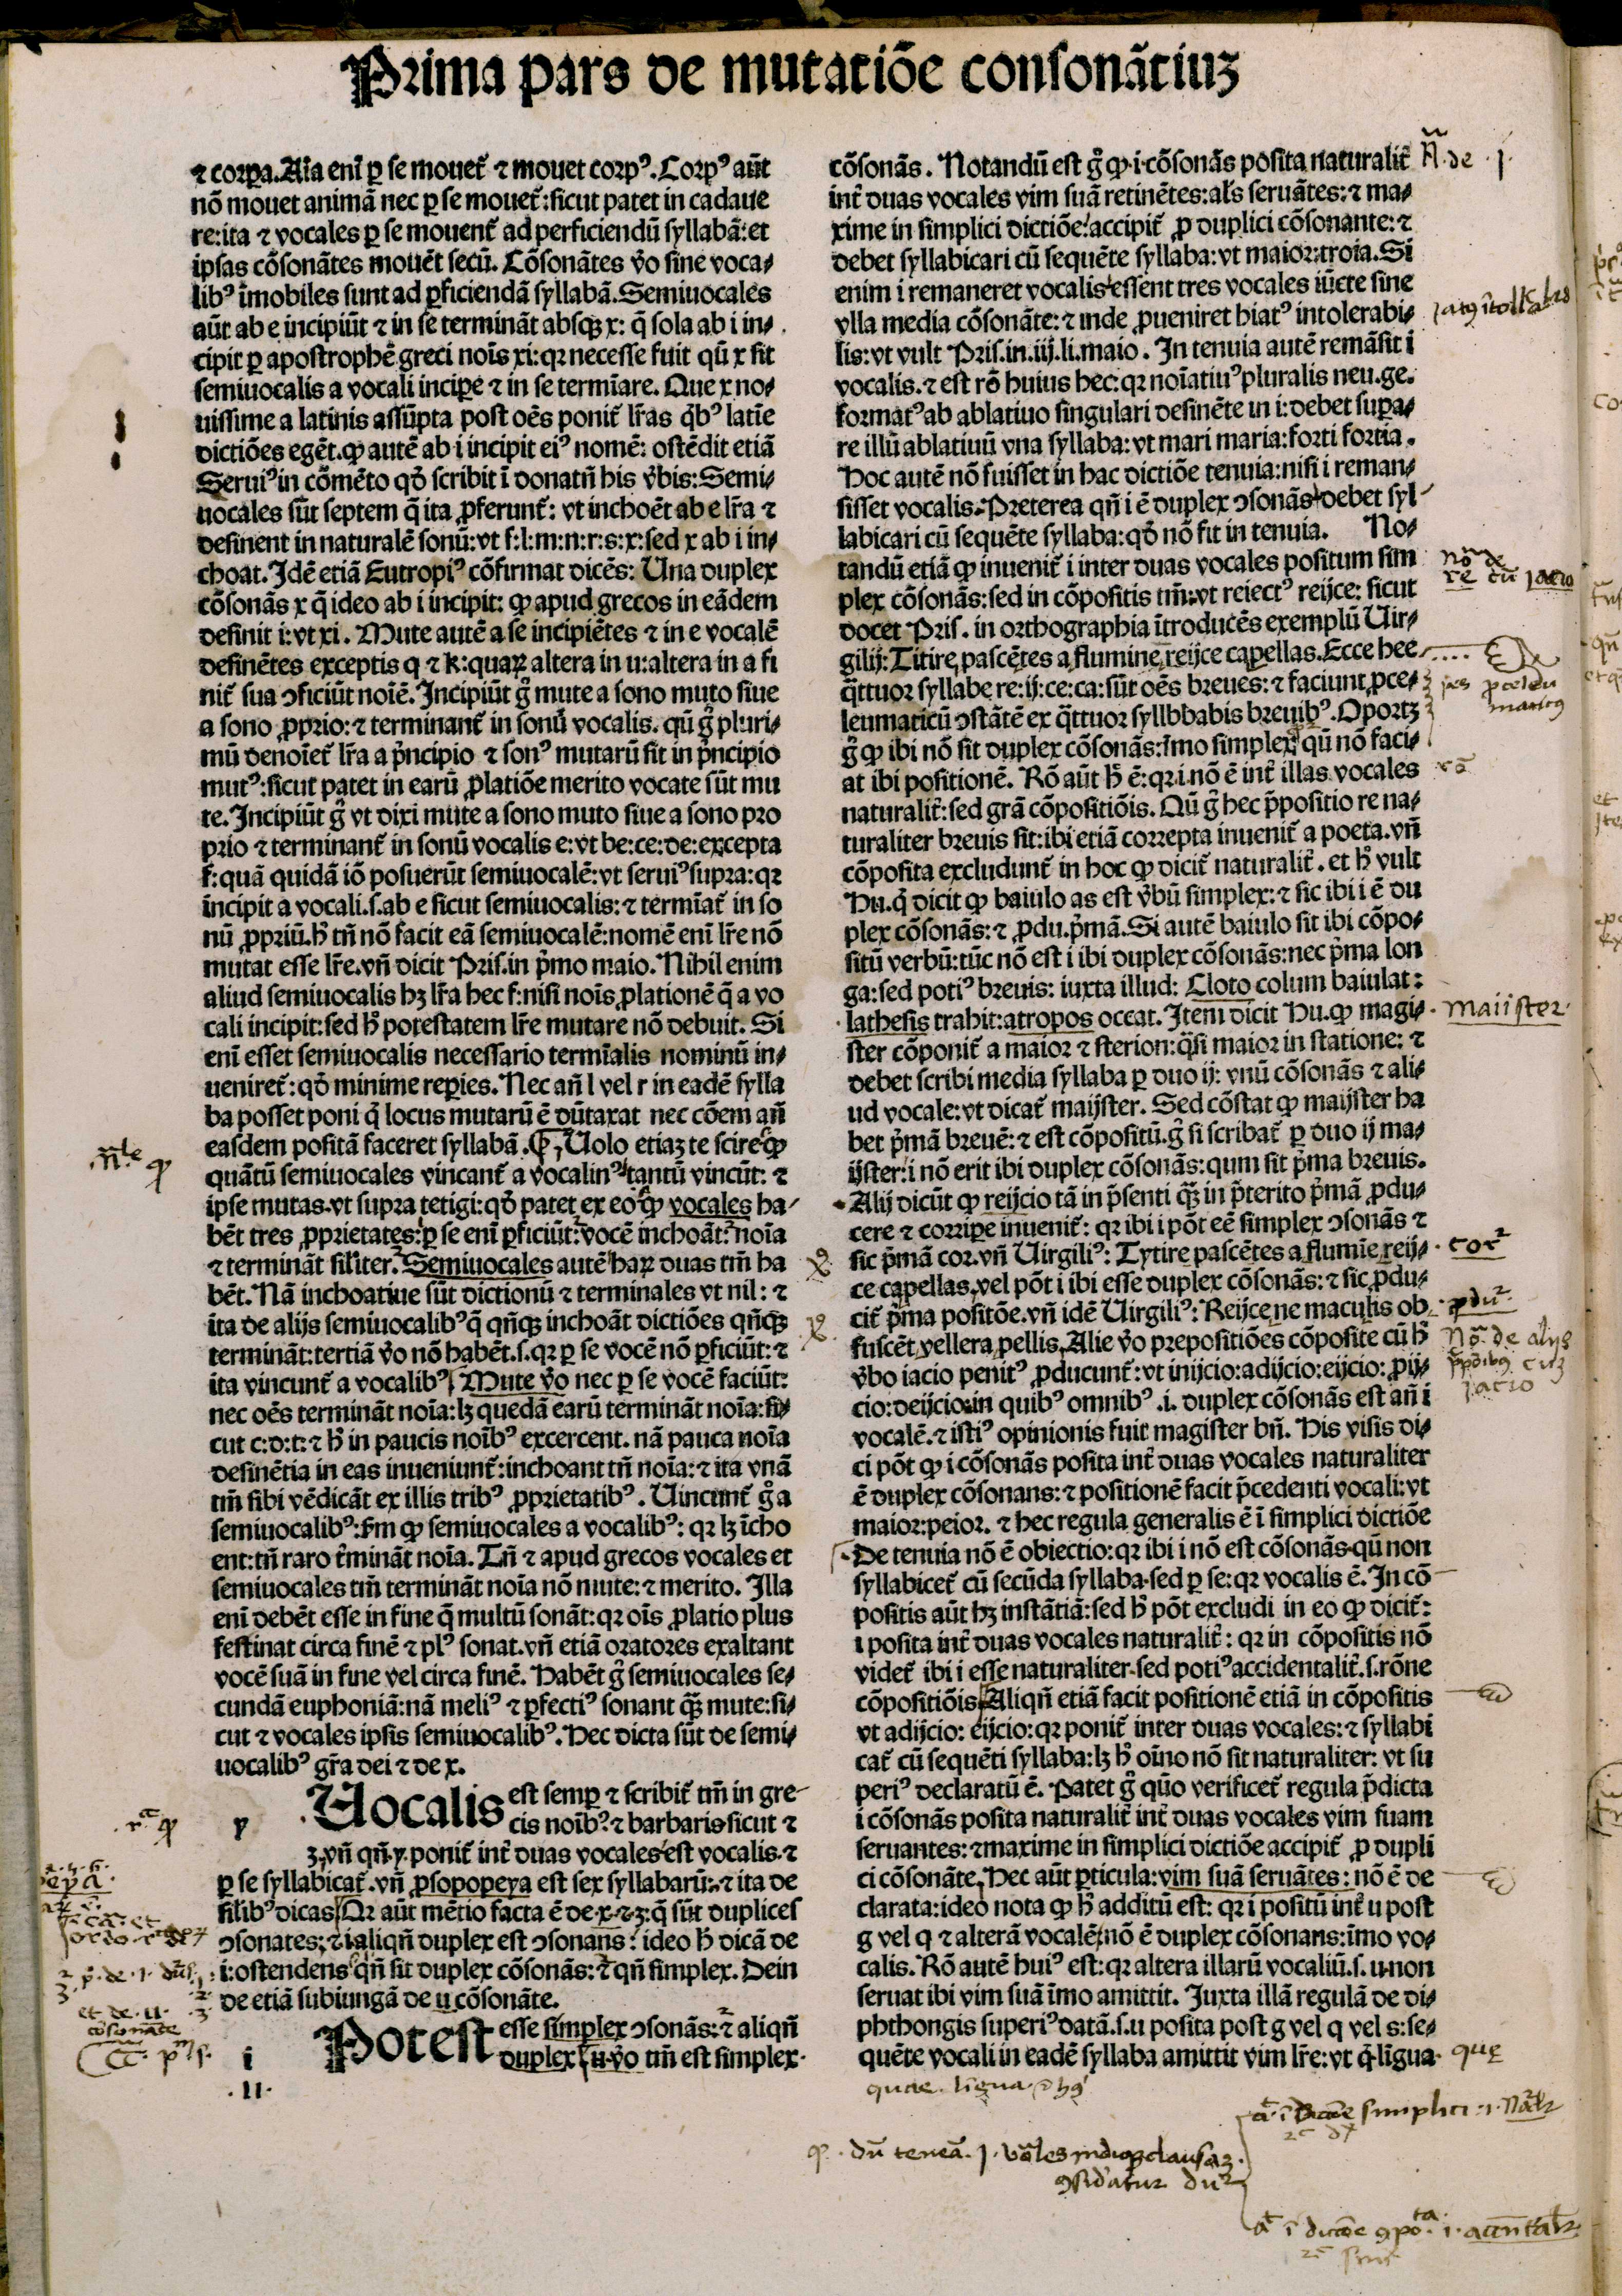 Prima pars de mutatiõe conſonãtiuʒ
⁊ corpa. Aĩa enĩ ꝑ se mouet̃ ⁊ mouet corpꝰ. Corpꝰ aũt
nõ mouet animã nec ꝑ se mouet̃: ſicut patet in cadaue
re: ita ⁊ vocales ꝑ se mouent̃ ad perficiendũ ſyllabã: et
ipſas cõſonãtes mouẽt ſecũ. Cõſonãtes ṽo ſine voca⸗
libꝰ ĩmobiles ſunt ad ꝑficiendã ſyllabã. Semiuocales
aũt ab e incipiũt ⁊ in ſe terminãt abſqʒ x: q̃ ſola ab i in⸗
cipit ꝑ apoſtrophẽ greci noĩs xi: qꝛ neceſſe fuit qũ x ſit
ſemiuocalis a vocali inciꝑe ⁊ in ſe termĩare. Que x no⸗
uiſſime a latinis aſſũpta poſt oẽs ponit̃ lr̃as q̃bꝰ latĩe
dictiões egẽt. ꝙ autẽ ab i incipit eiꝰ nomẽ: oſtẽdit etiã
Seruiꝰ in cõmẽto qð ſcribit ĩ donatũ his ṽbis: Semi⸗
uocales ſũt ſeptem q̃ ita ꝓferunt̃: vt inchoẽt ab e lr̃a ⁊
deſinent in naturalẽ ſonũ: vt f: l: m: n: r: s: x: ſed x ab i in⸗
choat. Idẽ etiã Eutropiꝰ cõfirmat dicẽs: Una duplex
cõſonãs x q̃ ideo ab i incipit: ꝙ apud grecos in eãdem
deſinit i: vt xi. Mute autẽ a ſe incipiẽtes ⁊ in e vocalẽ
deſinẽtes exceptis q ⁊ k: quaꝝ altera in u: altera in a fi
nit̃ ſua ↄficiũt noĩẽ. Incipiũt g̃ mute a ſono muto ſiue
a ſono ꝓprio: ⁊ terminant̃ in ſonũ vocalis. qũ g̃ pluri⸗
mũ denoĩet̃ lr̃a a p̃ncipio ⁊ ſonꝰ mutarũ ſit in p̃ncipio
mutꝰ: ſicut patet in earũ ꝓlatiõe merito vocate ſũt mu
te. Incipiũt g̃ vt dixi mute a ſono muto ſiue a ſono pro
prio ⁊ terminant̃ in ſonũ vocalis e: vt be: ce: de: excepta
f: quã quidã iõ poſuerũt ſemiuocalẽ: vt ſeruiꝰ ſupra: qꝛ
incipit a vocali. ſ. ab e ſicut ſemiuocalis: ⁊ termĩat̃ in ſo
nũ ꝓpriũ. h̃ tñ nõ facit eã ſemiuocalẽ: nomẽ enĩ lr̃e nõ
mutat eſſe lr̃e. vñ dicit Priſ. in p̃mo maio. Nihil enim
aliud ſemiuocalis hʒ lr̃a hec f: niſi noĩs ꝓlationẽ q̃ a vo
cali incipit: ſed h̃ poteſtatem lr̃e mutare nõ debuit. Si
enĩ eſſet ſemiuocalis neceſſario termĩalis nominũ in⸗
ueniret̃: qð minime reꝑies. Nec añ l vel r in eadẽ ſylla
ba poſſet poni q̃ locus mutarũ ẽ dũtaxat nec cõem añ
eaſdem poſitã faceret ſyllabã. Uolo etiaʒ te ſcire ꝙ
quãtũ ſemiuocales vincant̃ a vocalinꝰ tantũ vincũt: ⁊
ipſe mutas. vt ſupra tetigi: qð patet ex eo ꝙ vocales ha⸗
bẽt tres ꝓprietates: ꝑ ſe enĩ ꝑficiũt: vocẽ inchoãt: noĩa
⁊ terminãt ſil̃iter. Semiuocales autẽ haꝝ duas tm̃ ha
bẽt. Nã inchoatiue ſũt dictionũ ⁊ terminales vt nil: ⁊
ita de alijs ſemiuocalibꝰ q̃ qñqʒ inchoãt dictiões qñqʒ
terminãt: tertiã ṽo nõ habẽt. ſ. qꝛ ꝑ ſe vocẽ nõ ꝑficiũt: ⁊
ita vincunt̃ a vocalibꝰ. Mute ṽo nec ꝑ ſe vocẽ faciũt:
nec oẽs terminãt noĩa: lʒ quedã earũ terminãt noĩa: ſi⸗
cut c: d: t: ⁊ h̃ in paucis noĩbꝰ excercent. nã pauca noĩa
deſinẽtia in eas inueniunt̃: inchoant tñ noĩa: ⁊ ita vnã
tm̃ ſibi vẽdicãt ex illis tribꝰ ꝓprietatibꝰ. Uincunt̃ g̃ a
ſemiuocalibꝰ: ſm̃ ꝙ ſemiuocales a vocalibꝰ: qꝛ lʒ ĩcho
ent: tñ raro t̃minãt noĩa. Tñ ⁊ apud grecos vocales et
ſemiuocales tm̃ terminãt noĩa nõ mute: ⁊ merito. Illa
enĩ debẽt eſſe in fine q̃ multũ ſonãt: qꝛ oĩs ꝓlatio plus
feſtinat circa finẽ ⁊ plꝰ ſonat. vñ etiã oratores exaltant
vocẽ ſuã in fine vel circa finẽ. Habẽt g̃ ſemiuocales ſe⸗
cundã euphoniã: nã meliꝰ ⁊ ꝑfectiꝰ ſonant q̃ʒ mute: ſi⸗
cut ⁊ vocales ipſis ſemiuocalibꝰ. Hec dicta ſũt de ſemi⸗
uocalibꝰ gr̃a dei ⁊ de x.
y Uocalis est ſemꝑ ⁊ ſcribit̃ tm̃ in gre⸗
cis noĩbꝰ: ⁊ barbaris ſicut ⁊
ʒ. vñ qñ. y. ponit̃ int̃ duas vocales eſt vocalis. ⁊
ꝑ ſe ſyllabicat̃. vñ ꝓſopopeya eſt ſex ſyllabarũ: ⁊ ita de
ſil̃ibꝰ dicas. Qꝛ aũt mẽtio facta ẽ de x. ⁊ ʒ: q̃ ſũt duplices
ↄſonates: ⁊ i aliqñ duplex eſt ↄſonans: ideo h̃ dicã de
i: oſtendens qñ ſit duplex cõſonãs: ⁊ qñ ſimplex. Dein
de etiã ſubiungã de u cõſonãte.
i Poteſt eſſe ſimplex ↄſonãs: ⁊ aliqñ
duplex. u. ṽo tm̃ eſt ſimplex.
.II.
cõſonãs. Notandũ eſt g̃ ꝙ. i. cõſonãs poſita naturalit̃
int̃ duas vocales vim ſuã retinẽtes: al̃s ſeruãtes: ⁊ ma⸗
xime in ſimplici dictiõe: accipit̃ ꝓ duplici cõſonante: ⁊
debet ſyllabicari cũ ſequẽte ſyllaba: vt maior: troia. Si
enim i remaneret vocalis eſſent tres vocales iũcte ſine
vlla media cõſonãte: ⁊ inde ꝓueniret hiatꝰ intolerabi⸗
lis: vt vult Priſ. in. iij. li. maio. In tenuia autẽ remãſit i
vocalis. ⁊ eſt rõ huius hec: qꝛ noĩatiuꝰ pluralis neu. ge.
format̃ ab ablatiuo ſingulari deſinẽte in i: debet ſuꝑa⸗
re illũ ablatiuũ vna ſyllaba: vt mari maria: forti fortia.
Hoc autẽ nõ fuiſſet in hac dictiõe tenuia: niſi i reman⸗
ſiſſet vocalis. Preterea qñ i ẽ duplex ↄſonãs debet ſyl⸗
labicari cũ ſequẽte ſyllaba: qð nõ fit in tenuia. No⸗
tandũ etiã ꝙ inuenit̃ i inter duas vocales poſitum ſim
plex cõſonãs: ſed in cõpoſitis tm̃: vt reiectꝰ reijce: ſicut
docet Priſ. in orthographia ĩtroducẽs exemplũ Uir⸗
gilij: Titire paſcẽtes a flumine reijce capellas. Ecce hee
q̃ttuor ſyllabe re: ij: ce: ca: ſũt oẽs breues: ⁊ faciunt ꝓce⸗
leumaticũ ↄſtãtẽ ex q̃ttuor ſyllbbabis breuibꝰ. Oportʒ
g̃ ꝙ ibi nõ ſit duplex cõſonãs: ĩmo ſimplex qũ nõ faci⸗
at ibi poſitionẽ. Rõ aũt h̃ ẽ: qꝛ i nõ ẽ int̃ illas vocales
naturalit̃: ſed grã cõpoſitiõis. Qũ g̃ hec p̃poſitio re na⸗
turaliter breuis ſit: ibi etiã correpta inuenit̃ a poeta. vñ
cõpoſita excludunt̃ in hoc ꝙ dicit̃ naturalit̃. et h̃ vult
Hu. q̃ dicit ꝙ baiulo as eſt ṽbũ ſimplex: ⁊ ſic ibi i ẽ du
plex cõſonãs: ⁊ ꝓdu. p̃mã. Si autẽ baiulo ſit ibi cõpo⸗
ſitũ verbũ: tũc nõ eſt i ibi duplex cõſonãs: nec p̃ma lon
ga: ſed potiꝰ breuis: iuxta illud: Cloto colum baiulat:
latheſis trahit: atropos occat. Item dicit Hu. ꝙ magi⸗
ſter cõponit̃ a maior ⁊ ſterion: q̃ſi maior in ſtatione: ⁊
debet ſcribi media ſyllaba ꝑ duo ij: vnũ cõſonãs ⁊ ali⸗
ud vocale: vt dicat̃ maijſter. Sed cõſtat ꝙ maijſter ha
bet p̃mã breuẽ: ⁊ eſt cõpoſitũ. g̃ ſi ſcribat̃ ꝑ duo ij ma⸗
ijſter: i nõ erit ibi duplex cõſonãs: qum ſit p̃ma breuis.
Alij dicũt ꝙ reijcio tã in p̃ſenti q̃ʒ in p̃terito p̃mã ꝓdu⸗
cere ⁊ corriꝑe inuenit̃: qꝛ ibi i põt eẽ ſimplex ↄſonãs ⁊
ſic p̃mã cor. vñ Uirgiliꝰ: Tytire paſcẽtes a flumĩe reij⸗
ce capellas, vel põt i ibi eſſe duplex cõſonãs: ⁊ ſic ꝓdu⸗
cit̃ p̃ma poſitõe. vñ idẽ Uirgiliꝰ: Reijce ne maculis ob
fuſcẽt vellera pellis. Alie ṽo prepoſitiões cõpoſite cũ h̃
ṽbo iacio penitꝰ ꝓducunt̃: vt inijcio: adijcio: eijcio: ꝓij⸗
cio: deijcio: in quibꝰ omnibꝰ .i. duplex cõſonãs eſt añ i
vocalẽ. ⁊ iſtiꝰ opinionis fuit magiſter bñ. His viſis di⸗
ci põt ꝙ i cõſonãs poſita int̃ duas vocales naturaliter
ẽ duplex cõſonans: ⁊ poſitionẽ facit p̃cedenti vocali: vt
maior: peior. ⁊ hec regula generalis ẽ ĩ ſimplici dictiõe
De tenuia nõ ẽ obiectio: qꝛ ibi i nõ eſt cõſonãs. qũ non
ſyllabicet̃ cũ ſecũda ſyllaba. ſed ꝑ ſe: qꝛ vocalis ẽ. In cõ
poſitis aũt hʒ inſtãtiã: ſed h̃ põt excludi in eo ꝙ dicit̃:
i poſita int̃ duas vocales naturalit̃: qꝛ in cõpoſitis nõ
videt̃ ibi i eſſe naturaliter. ſed potiꝰ accidentalit̃. ſ. rõne
cõpoſitiõis. Aliqñ etiã facit poſitionẽ etiã in cõpoſitis
vt adijcio: eijcio: qꝛ ponit̃ inter duas vocales: ⁊ ſyllabi
cat̃ cũ ſequẽti ſyllaba: lʒ h̃ oĩno nõ ſit naturaliter: vt ſu
periꝰ declaratũ ẽ. Patet g̃ quõ verificet̃ regula p̃dicta
i cõſonãs poſita naturalit̃ int̃ duas vocales vim ſuam
ſeruantes: ⁊ maxime in ſimplici dictiõe accipit̃ ꝓ dupli
ci cõſonãte. Hec aũt ꝑticula: vim ſuã ſeruãtes: nõ ẽ de
clarata: ideo nota ꝙ h̃ additũ eſt: qꝛ i poſitũ int̃ u poſt
g vel q ⁊ alterã vocalẽ: nõ ẽ duplex cõſonans: ĩmo vo⸗
calis. Rõ autẽ huiꝰ eſt: qꝛ altera illarũ vocaliũ. ſ. u. non
ſeruat ibi vim ſuã ĩmo amittit. Iuxta illã regulã de di⸗
phthongis ſuperiꝰ datã. ſ. u poſita poſt g vel q vel s: ſe⸗
quẽte vocali in eadẽ ſyllaba amittit vim lr̃e: vt q̃ lĩgua
Ñ. de . j.
maiister.
cor̃
ꝓdur̃.
iacio
que